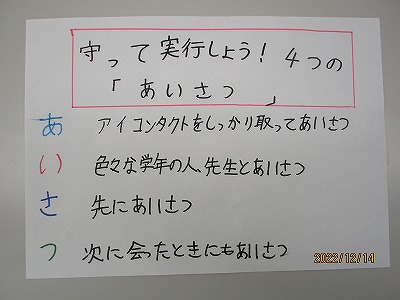 守って実行しよう！4つの
「あいさつ」
あ アイコンタクトをしっかり取ってあいさつ
い 色々な学年の人、先生とあいさつ
さ 先にあいさつ
つ 次に会ったときにもあいさつ
2022/12/14